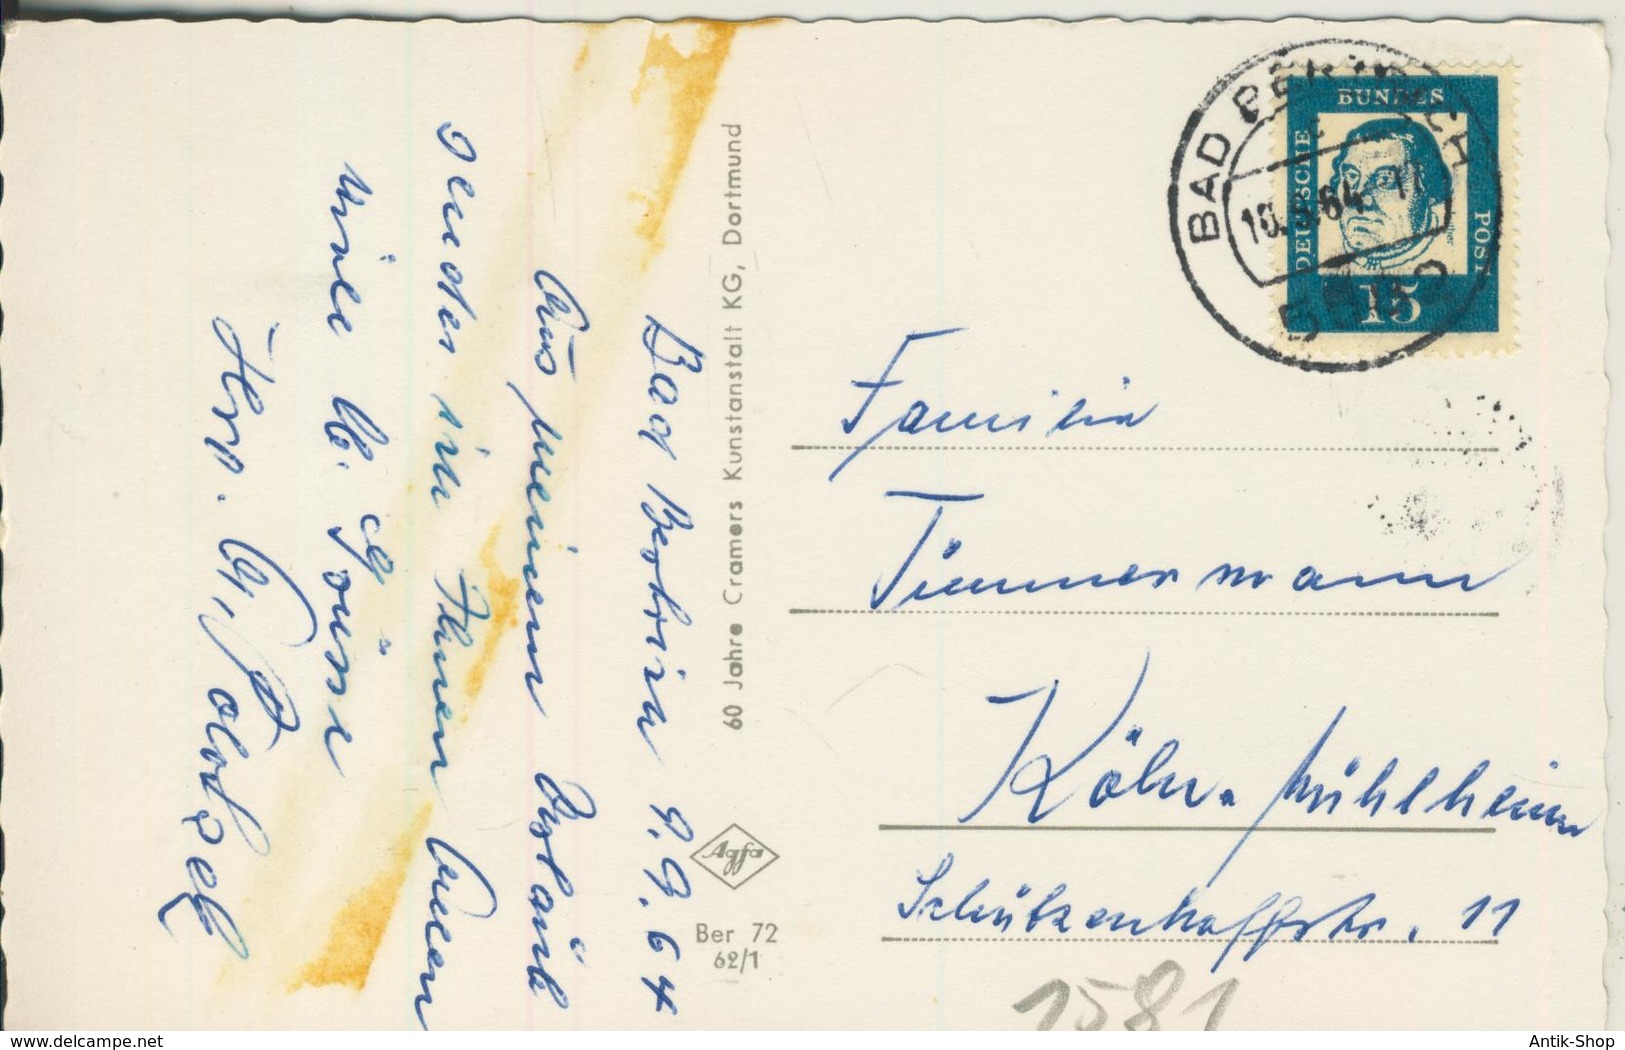 Bad Bertrich 9.9.64
Aus meinem Urlaub
senden wir Ihnen
viele lb. Grüsse
Herr.
60 Jahre Cramers Kunstanstalt KG, Dortmund
Agfa
Ber 72
62/1
BAD BERTRICH
10.9.64
DEUTSCHE
BUNDES
POST
15
Familie
Timmermann
Köln-Mühlheim
Schützenhoffstr. 11
1581
www.delcampe.net
Antik-Shop